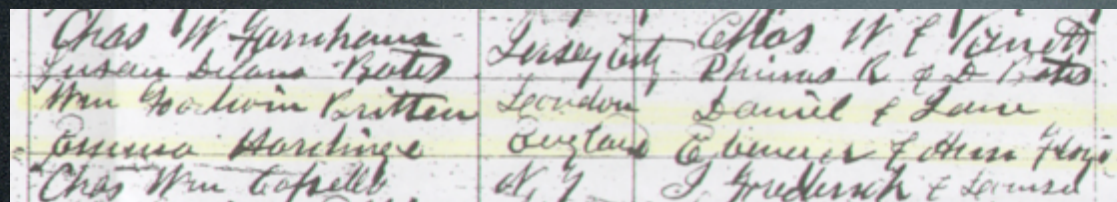 Chas W Farnham Jersey City Chas W &
Susan Delano Bates Phineas R & D Bates
Wm Goodwin Britten London Daniel & Jane
Emma Hardinge England Ebenezer & Ann Floyd
Chas Wm N.Y. J Frederick & Louisa